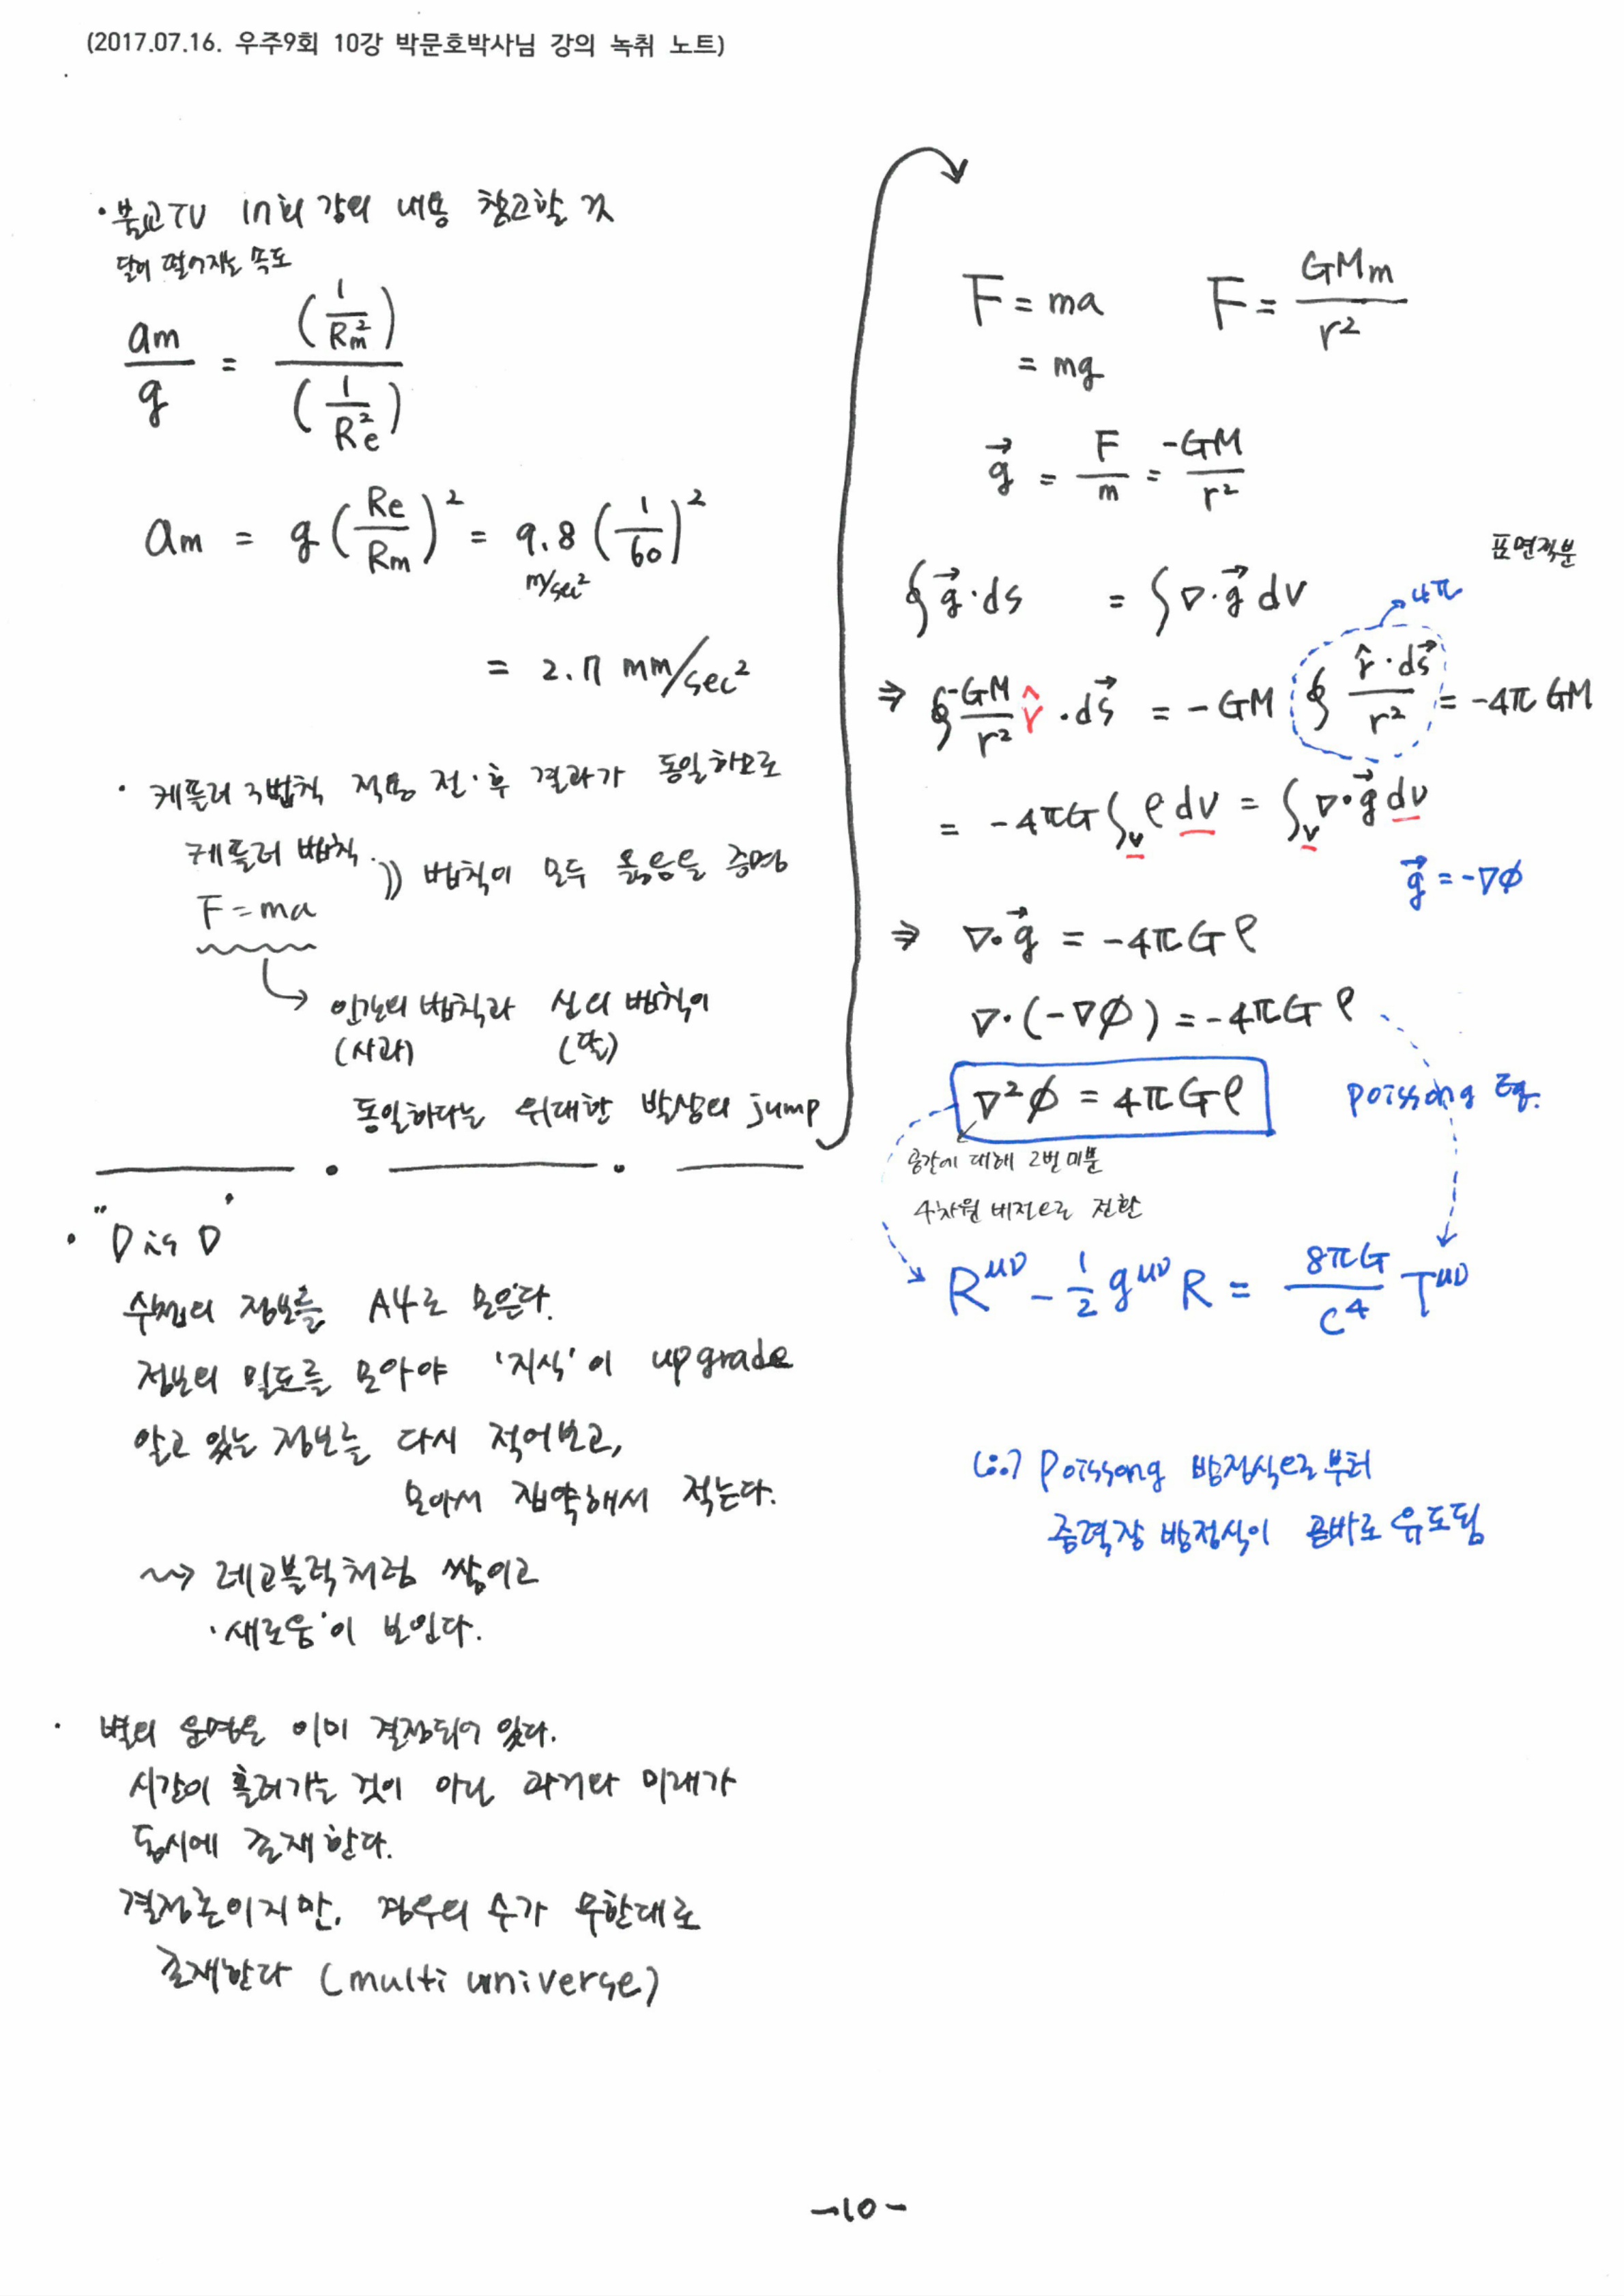 (2017.07.16. 우주9회 10강 박문호박사님 강의 녹취 노트)
· 불교TV 17회 강의 내용 참고할 것
달이 떨어지는 속도
am/g = (1/Rm²)/(1/Re²)
am = g (Re/Rm)² = 9.8 (1/60)²
m/sec²
= 2.7 mm/sec²
· 케플러 3법칙 적용 전·후 결과가 동일하므로
케플러 법칙
F = ma
)) 법칙이 모두 옳음을 증명
인간의 법칙과 신의 법칙이
(사과) (달)
동일하다는 위대한 발상의 jump
· "D is D"
수첩의 정보를 A4로 모은다.
정보의 밀도를 모아야 '지식'이 upgrade
알고 있는 정보를 다시 적어보고,
모아서 집약해서 적는다.
~→ 레고블럭처럼 쌓이고
'새로움'이 보인다.
· 별의 운명은 이미 결정되어 있다.
시간이 흘러가는 것이 아닌 과거와 미래가
동시에 존재한다.
결정론이지만, 경우의 수가 무한대로
존재한다 (multi universe)
F = ma F = GMm/r²
= mg
g⃗ = F/m = -GM/r²
표면적분
∮ g⃗·ds = ∫ ∇·g⃗ dv
4π
⇒ ∮ -GM/r² r̂ · ds⃗ = -GM ∮ r̂·ds⃗/r² = -4πGM
= -4πG ∫v ρ dv = ∫v ∇·g⃗ dv
g⃗ = -∇φ
⇒ ∇·g⃗ = -4πGρ
∇·(-∇φ) = -4πGρ
∇²φ = 4πGρ poissong Eq.
공간에 대해 2번 미분
4차원 버전으로 전환
R^μν - 1/2 g^μν R = 8πG/c⁴ T^μν
(∵) poissong 방정식으로부터
중력장 방정식이 곧바로 유도됨
-10-